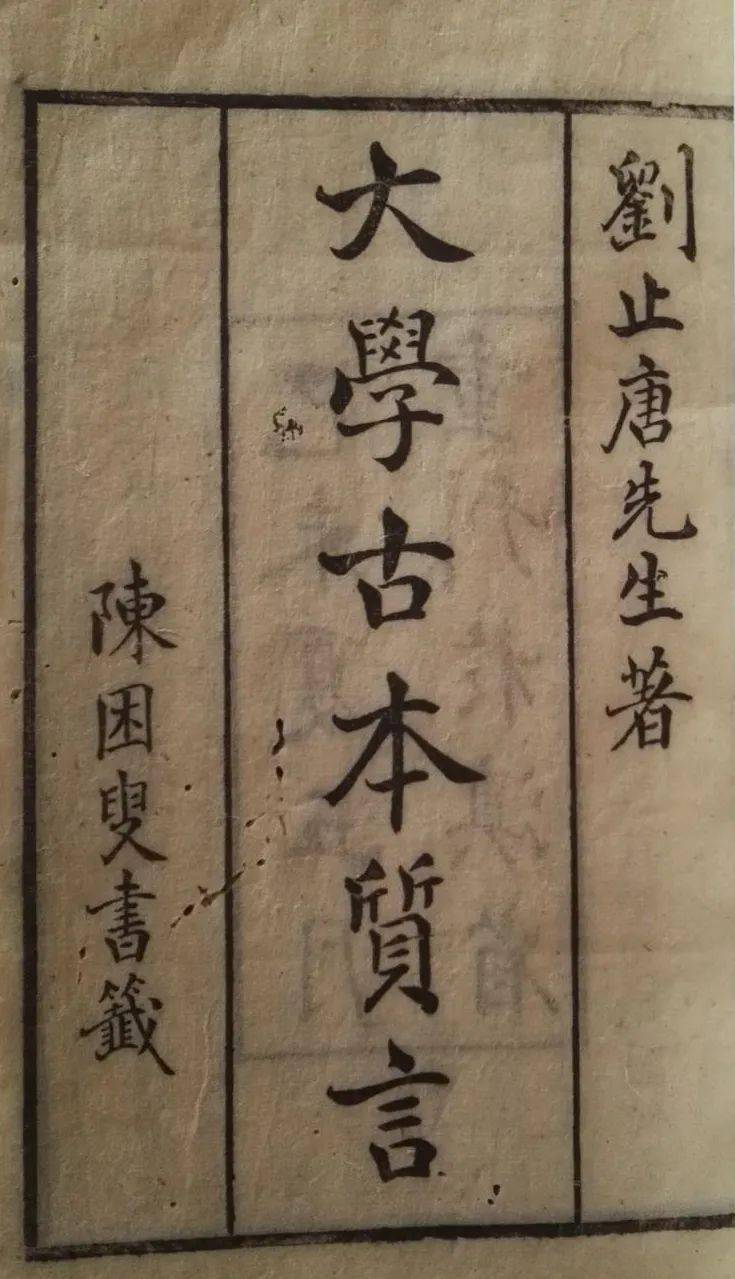 劉止唐先生著
大學古本質言
陳困叟書籤